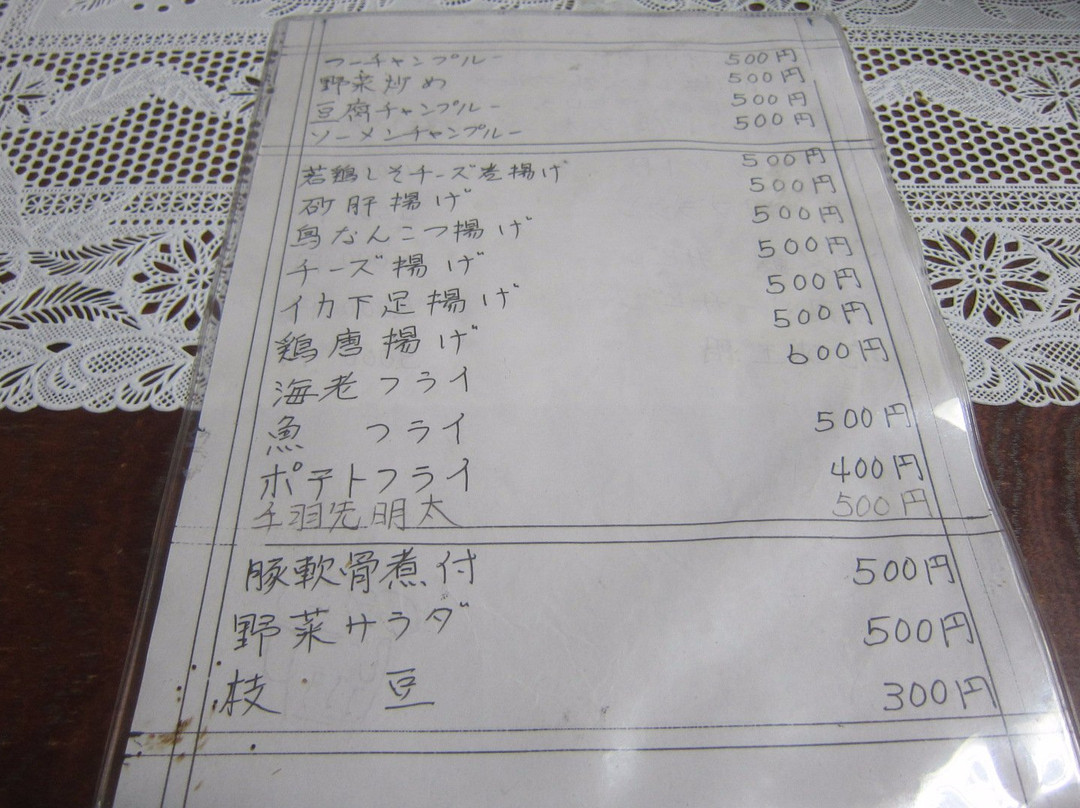 フーチャンプルー 500円
野菜炒め 500円
豆腐チャンプルー 500円
ソーメンチャンプルー 500円
若鶏しそチーズ巻揚げ 500円
砂肝揚げ 500円
鳥なんこつ揚げ 500円
チーズ揚げ 500円
イカ下足揚げ 500円
鶏唐揚げ 500円
海老フライ 600円
魚 フライ 500円
ポテトフライ 400円
手羽先明太 500円
豚軟骨煮付 500円
野菜サラダ 500円
枝 豆 300円